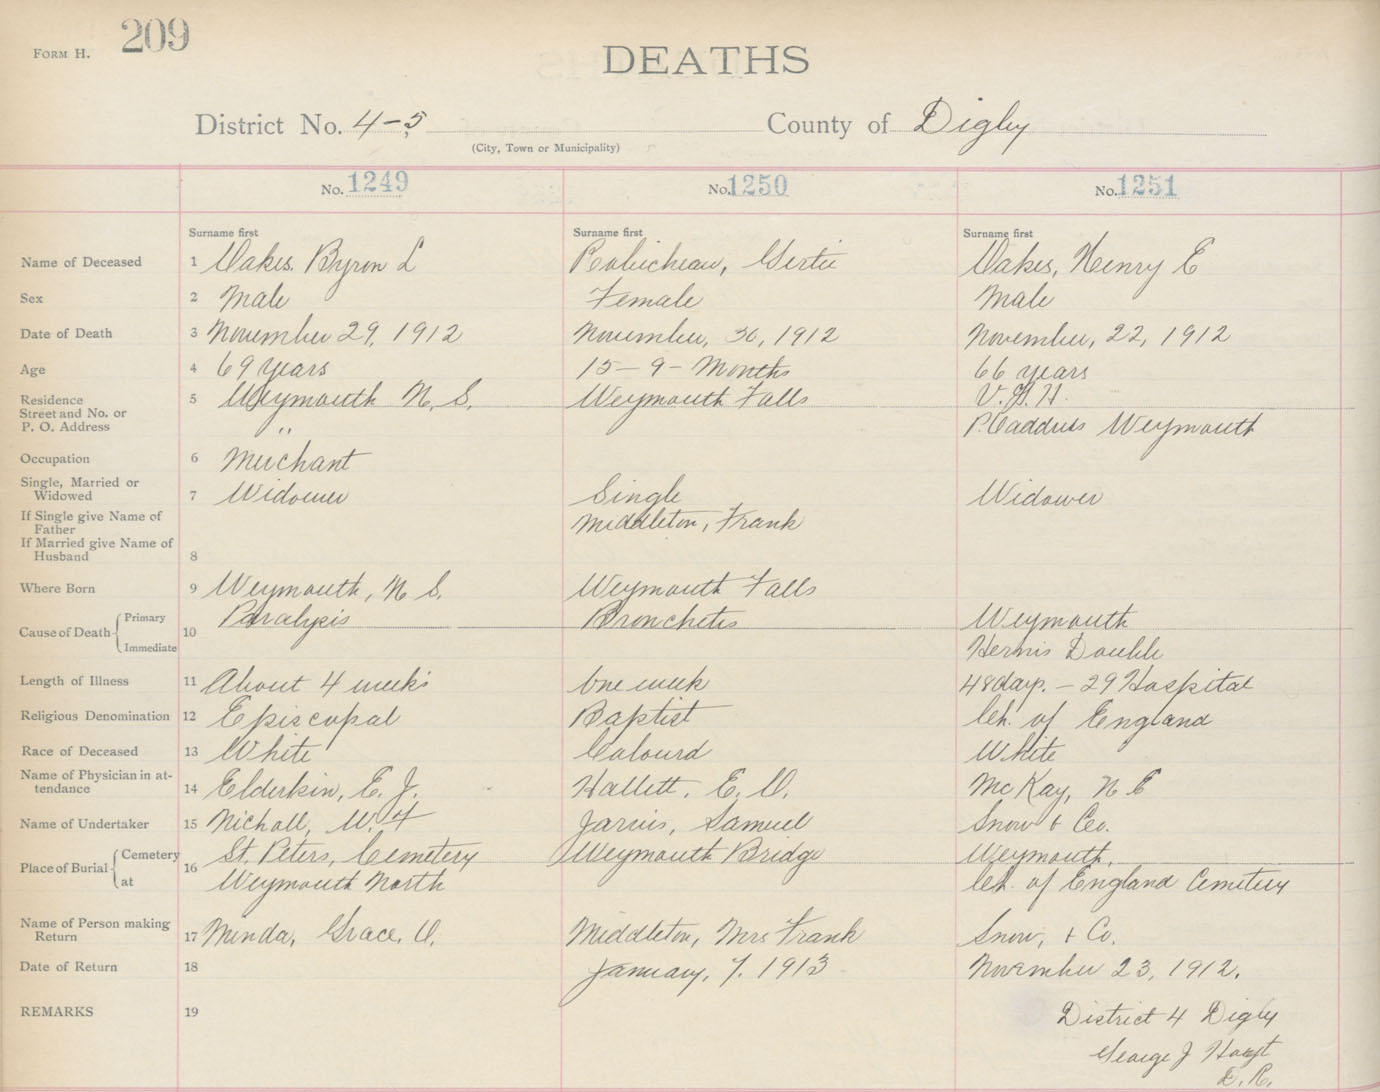 FORM H. 209
DEATHS
District No. 4-5 County of Digby
(City, Town or Municipality)
No. 1249 No. 1250 No. 1251
Surname first Surname first Surname first
Name of Deceased 1 Oakes, Byron L Robicheau, Gertie Oakes, Henry E
Sex 2 Male Female Male
Date of Death 3 November 29, 1912 November, 30, 1912 November, 22, 1912
Age 4 69 years 15 - 9 - Months 66 years
Residence 5 Weymouth N. S. Weymouth Falls V. G. H.
Street and No. or
P. O. Address " P. O address Weymouth
Occupation 6 Merchant
Single, Married or
Widowed 7 Widower Single Widower
If Single give Name of
Father Middleton, Frank
If Married give Name of
Husband 8
Where Born 9 Weymouth, N S. Weymouth Falls
Cause of Death Primary 10 Paralysis Bronchetis Weymouth
Immediate Hernis Double
Length of Illness 11 About 4 week's One week 48 days. - 29 Hospital
Religious Denomination 12 Episcopal Baptist Ch. of England
Race of Deceased 13 White Colourd White
Name of Physician in at-
tendance 14 Elderkin, E. J. Hallett, E. O. McKay, N E
Name of Undertaker 15 Nicholl, W. H Jarvis, Samuel Snow & Co.
Place of Burial Cemetery 16 St. Peters, Cemetery Weymouth Bridge Weymouth,
at Weymouth North Ch. of England Cemetery
Name of Person making
Return 17 Grace. O. Middleton, Mrs Frank Snow, & Co.
Date of Return 18 January, 7. 1913 November 23, 1912.
REMARKS 19 District 4 Digby
George J
D. R.